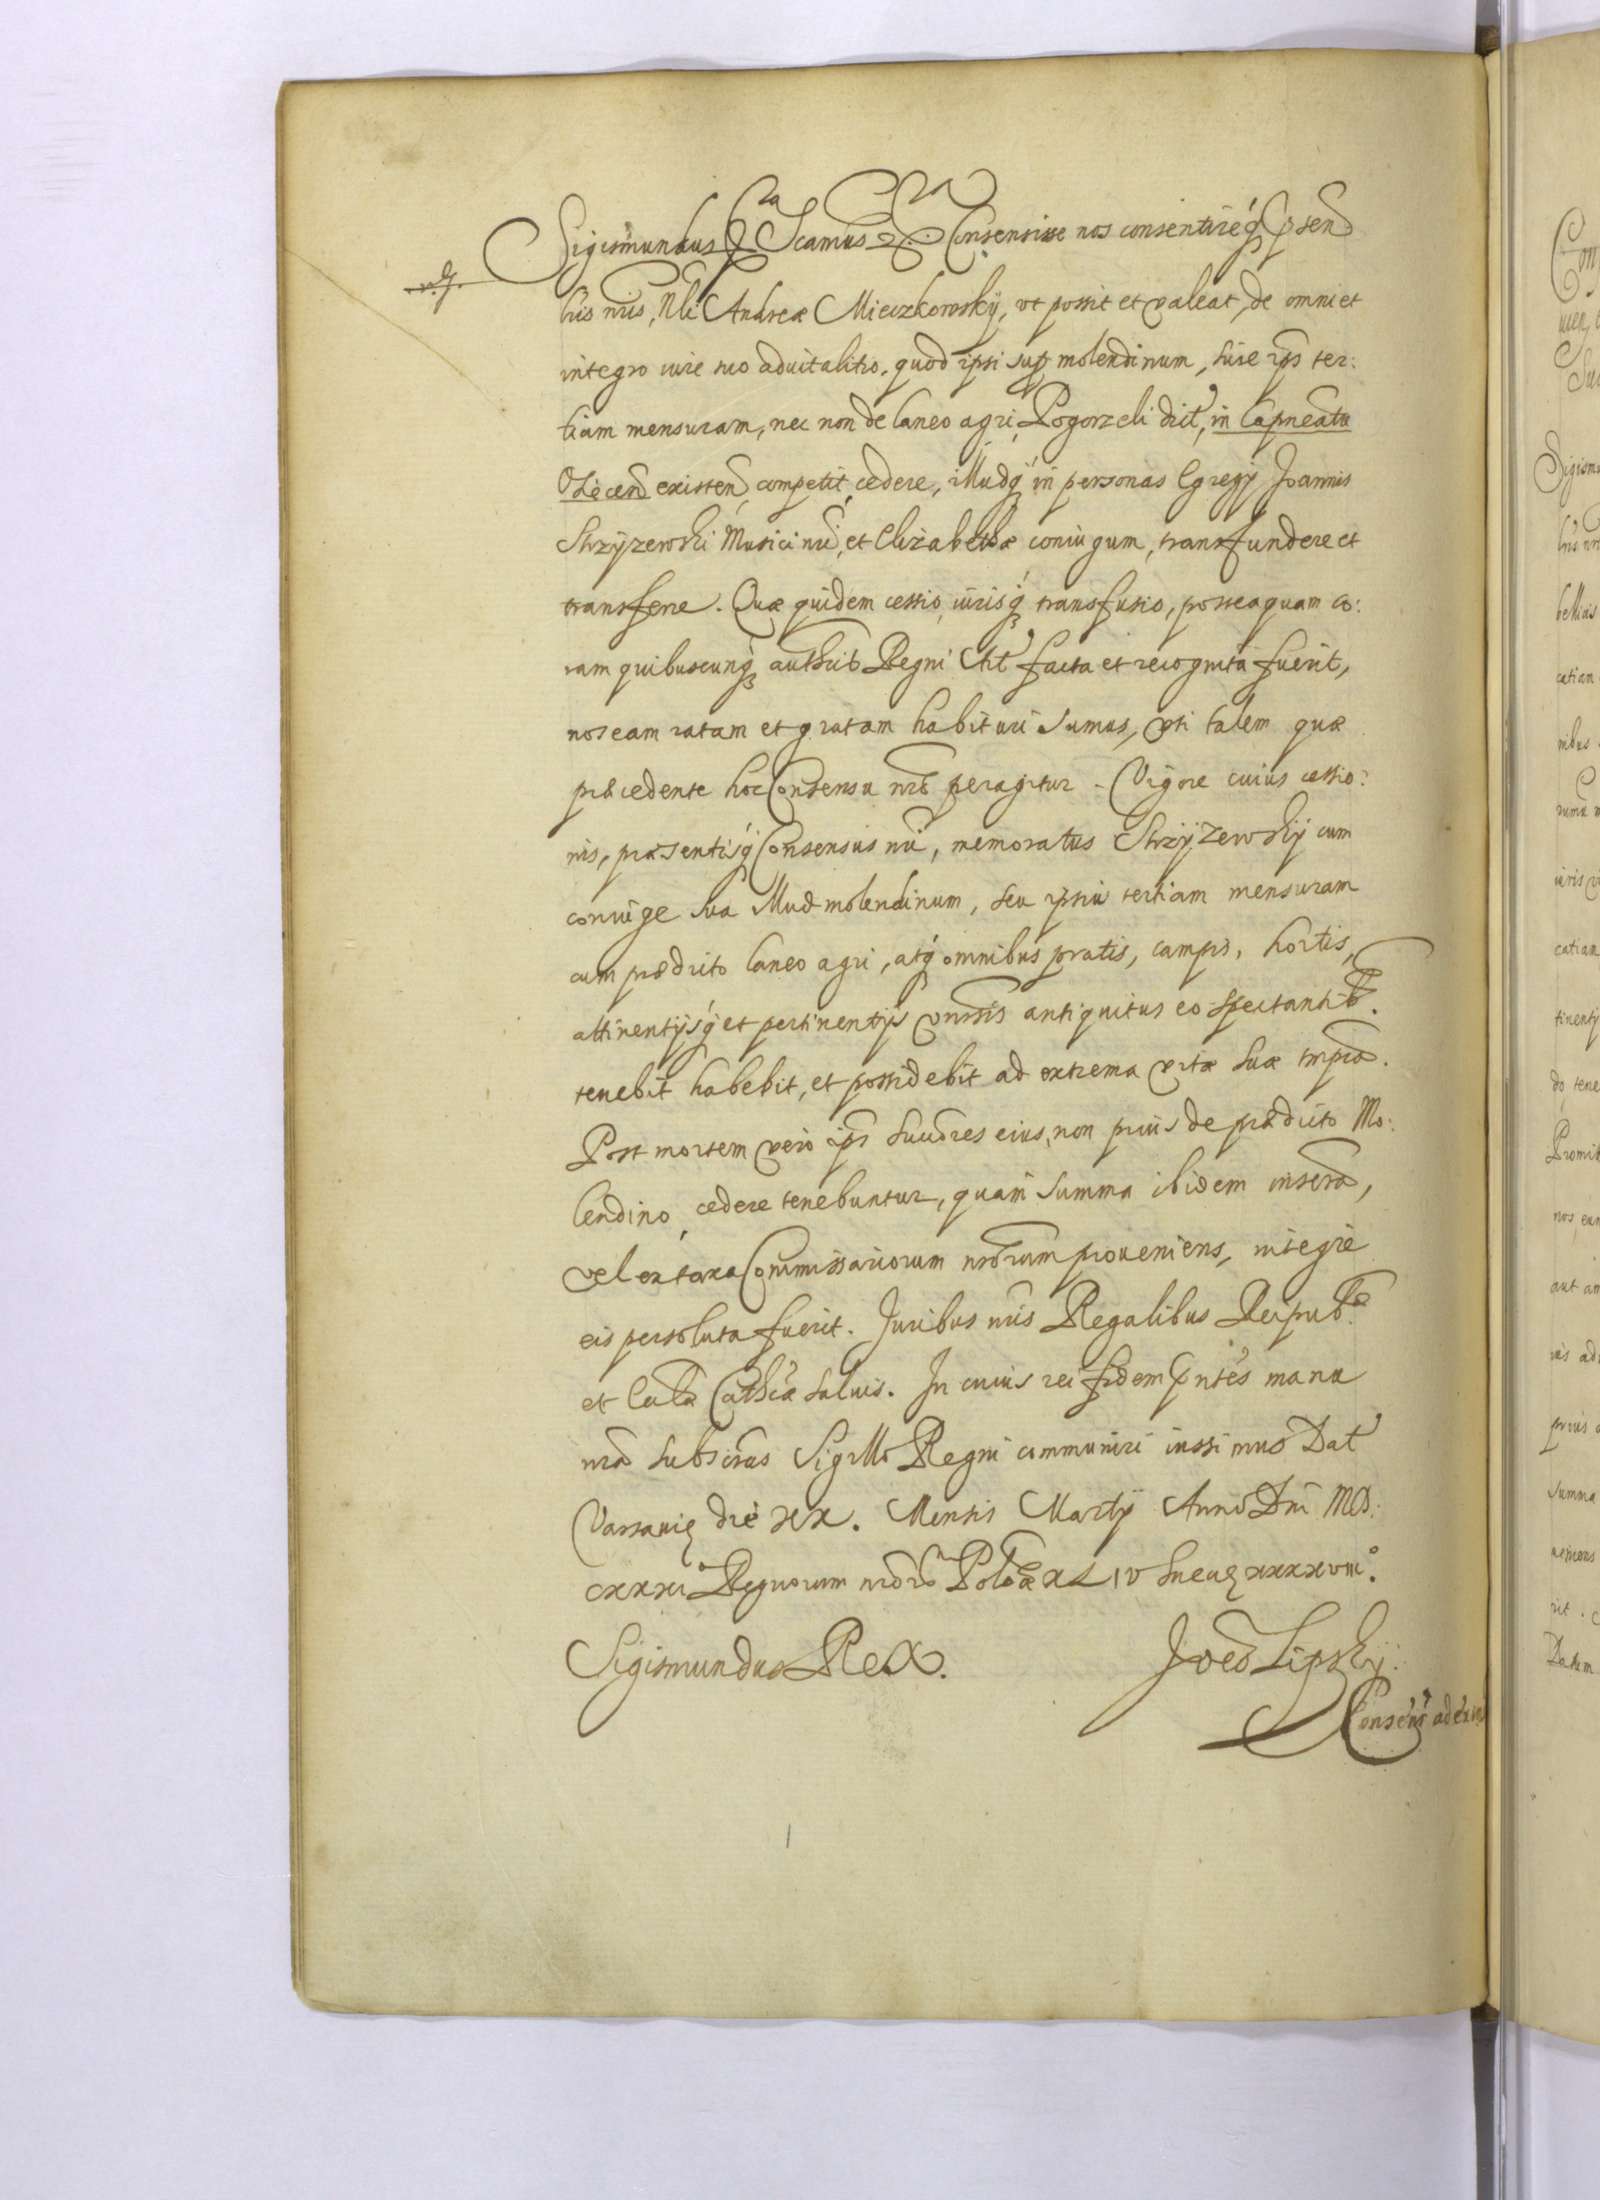 Sigismundus &c̃a Scamus &c̃a Consensisse nos consentireq́ȝ ꝑsen
lris nris, Nbli Andreæ Mieczkowskÿ, vt possit et valeat, de omni et
integro iure suo aduitalitio, quod ipsi sup molendinum, siue ips ter:
tiam mensuram, nec non de laneo agri, Pogorzeli dict, in Capneatu
existen competit cedere, illudq́ȝ in personas Egregÿ Joannis
Strzÿzewski Musici nri, et Elizabethæ coniugum, transfundere et
transferre. Quæ quidem cessio, iurisq́ȝ transfusio, posteaquam co:
ram quibuscunq́ȝ authcis Regni Act facta et recognita fuerit,
nos eam ratam et gratam habituri sumus, vti talem quæ
præcedente hoc Consensu nro peragitur. Vigore cuius cessio:
nis, præsentisq́ȝ Consensus nri, memoratus Strzÿzewskÿ cum
coniuge sua illud molendinum, seu ipsius tertiam mensuram
cum prædicto laneo agri, atq́ȝ omnibus pratis, campis, hortis,
attinentijsq́ȝ et pertinentijs vnirsis antiquitus eo spectantib.
tenebit habebit, et possidebit ad extrema vitæ suæ tmpra.
Post mortem vero ips succres eius, non prius de prædicto Mo:
lendino cedere tenebuntur, quam summa ibidem inscra,
vel ex taxa Commissariorum nrorum proueniens, integre
eis persoluta fuerit. Juribus nris Regalibus Reipub.
et Eccla Cathca saluis. In cuius rei fidem ꝑntes manu
nra subscras Sigillo Regni communiri iussimus Dat
Varsauię die xx. Mensis Martÿ Anno Dni MD:
cxxxi Regnorum nroro Polo æ xLiv Suecię xxxxviii.º
Sigismundus Rex.
Joes Lipskÿ.
Consens